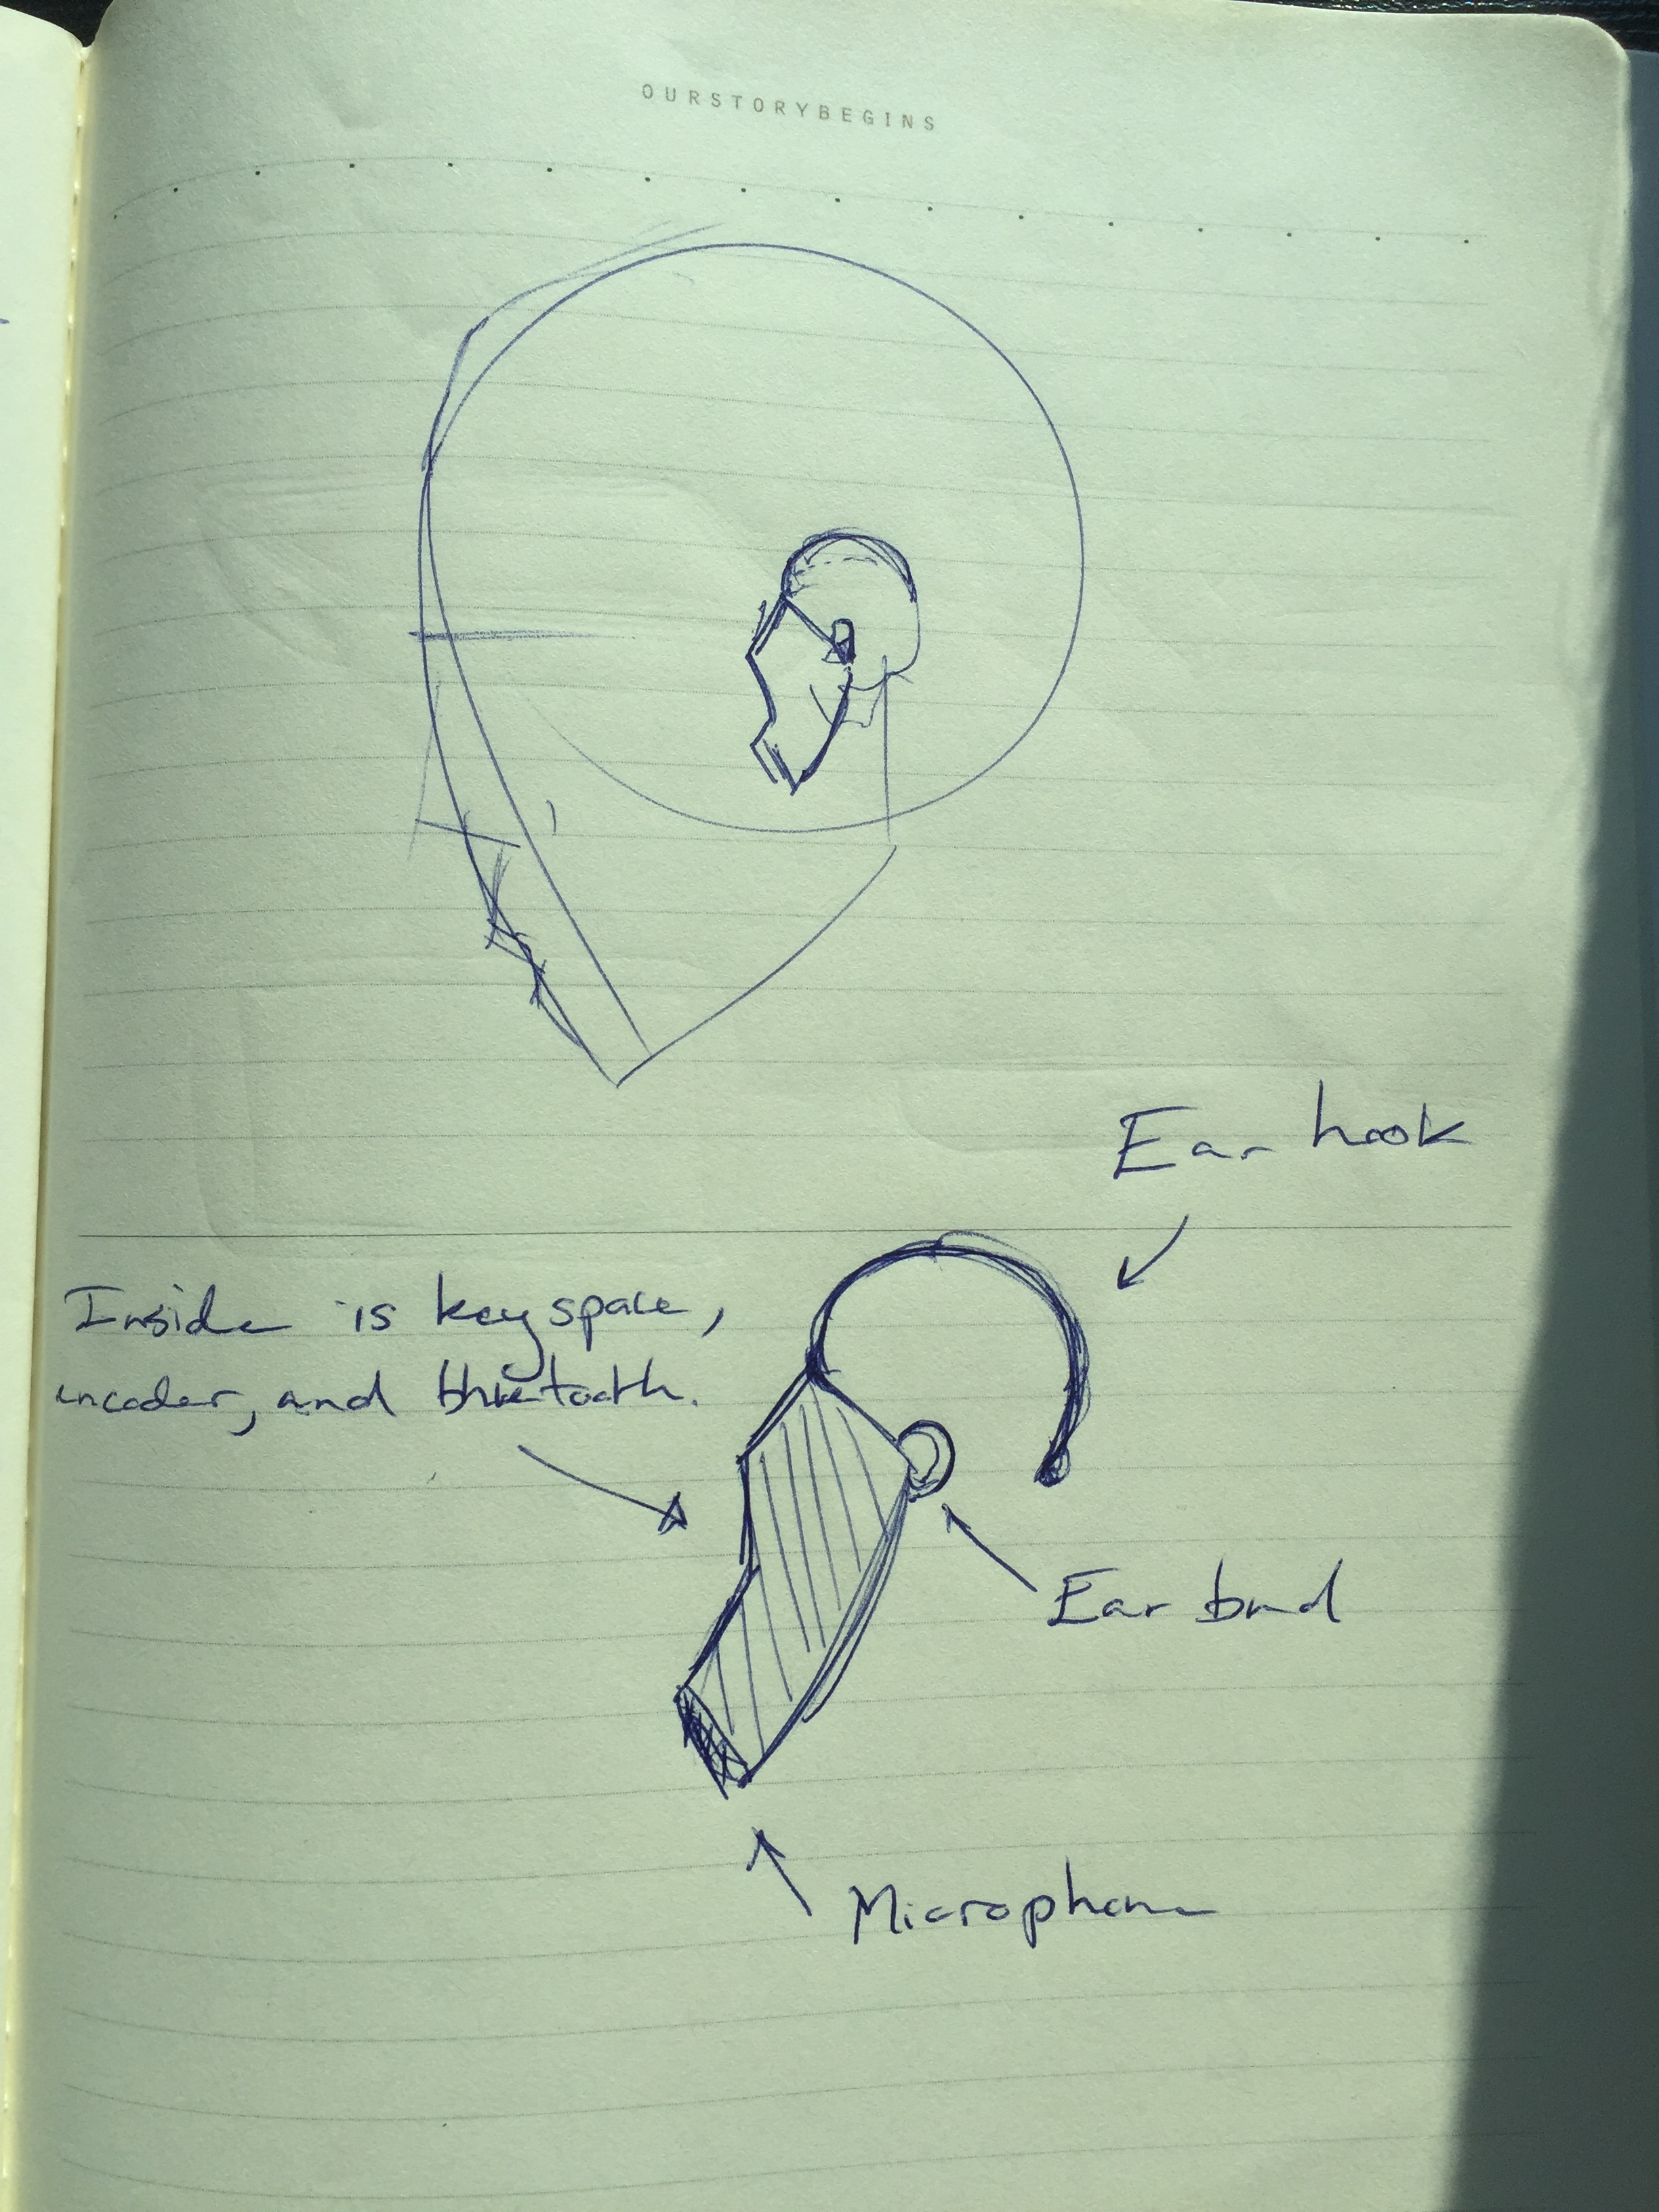 OURSTORYBEGINS
Ear hook
Inside is key space,
encoder, and bluetooth.
Ear bud
Microphone